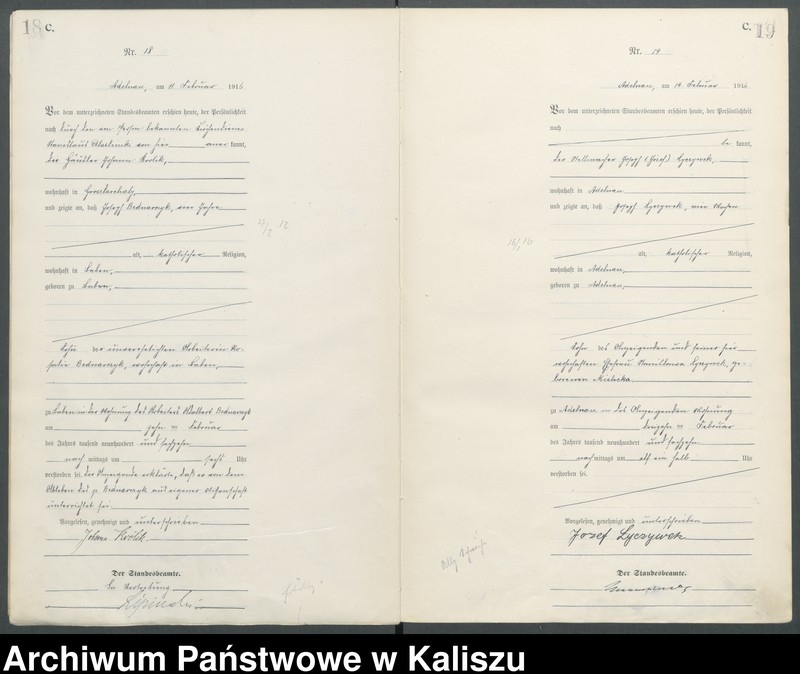 18 C.
Nr. 18
Adelnau, am 11 Februar 1916
Vor dem unterzeichneten Standesbeamten erschien heute, der Persönlichkeit
nach durch den von Person bekannten
von hier aner kannt,
der Häusler Johann Krolik,
wohnhaft in
und zeigte an, daß Joseph Bednarczyk, vier Jahre
alt, katholischer Religion,
wohnhaft in Baben,
geboren zu Baben,
Sohn der unverehelichten Arbeiterin Ro-
salie Bednarczyk, wohnhaft in Baben,
zu Baben in der Wohnung des Arbeiters Adalbert Bednarczyk
am zehn ten Februar
des Jahres tausend neunhundert und sechzehn
nach mittags um sechs Uhr
verstorben sei. Der Anzeigende erklärte, daß er von dem
Ableben des p. Bednarczyk aus eigener Wissenschaft
unterrichtet sei
Vorgelesen, genehmigt und unterschrieben
Johann Krolik
Der Standesbeamte.
In Vertretung
C. 19
Nr. 19
Adelnau, am 14 Februar 1916
Vor dem unterzeichneten Standesbeamten erschien heute, der Persönlichkeit
nach
be kannt,
der Stellmacher Joseph (Josef) Lyczywek,
wohnhaft in Adelnau
und zeigte an, daß Joseph Lyczywek, vier Wochen
alt, katholischer Religion,
wohnhaft in Adelnau,
geboren zu Adelnau,
Sohn des Anzeigenden und seiner hier
wohnhaften Ehefrau Stanislawa Lyczywek, ge-
borenen Mielcka
zu Adelnau in des Anzeigenden Wohnung
am dreizehn ten Februar
des Jahres tausend neunhundert und sechzehn
nach mittags um elf ein halb Uhr
verstorben sei.
Vorgelesen, genehmigt und unterschrieben
Jozef Lyczywek
Der Standesbeamte.
Archiwum Państwowe w Kaliszu